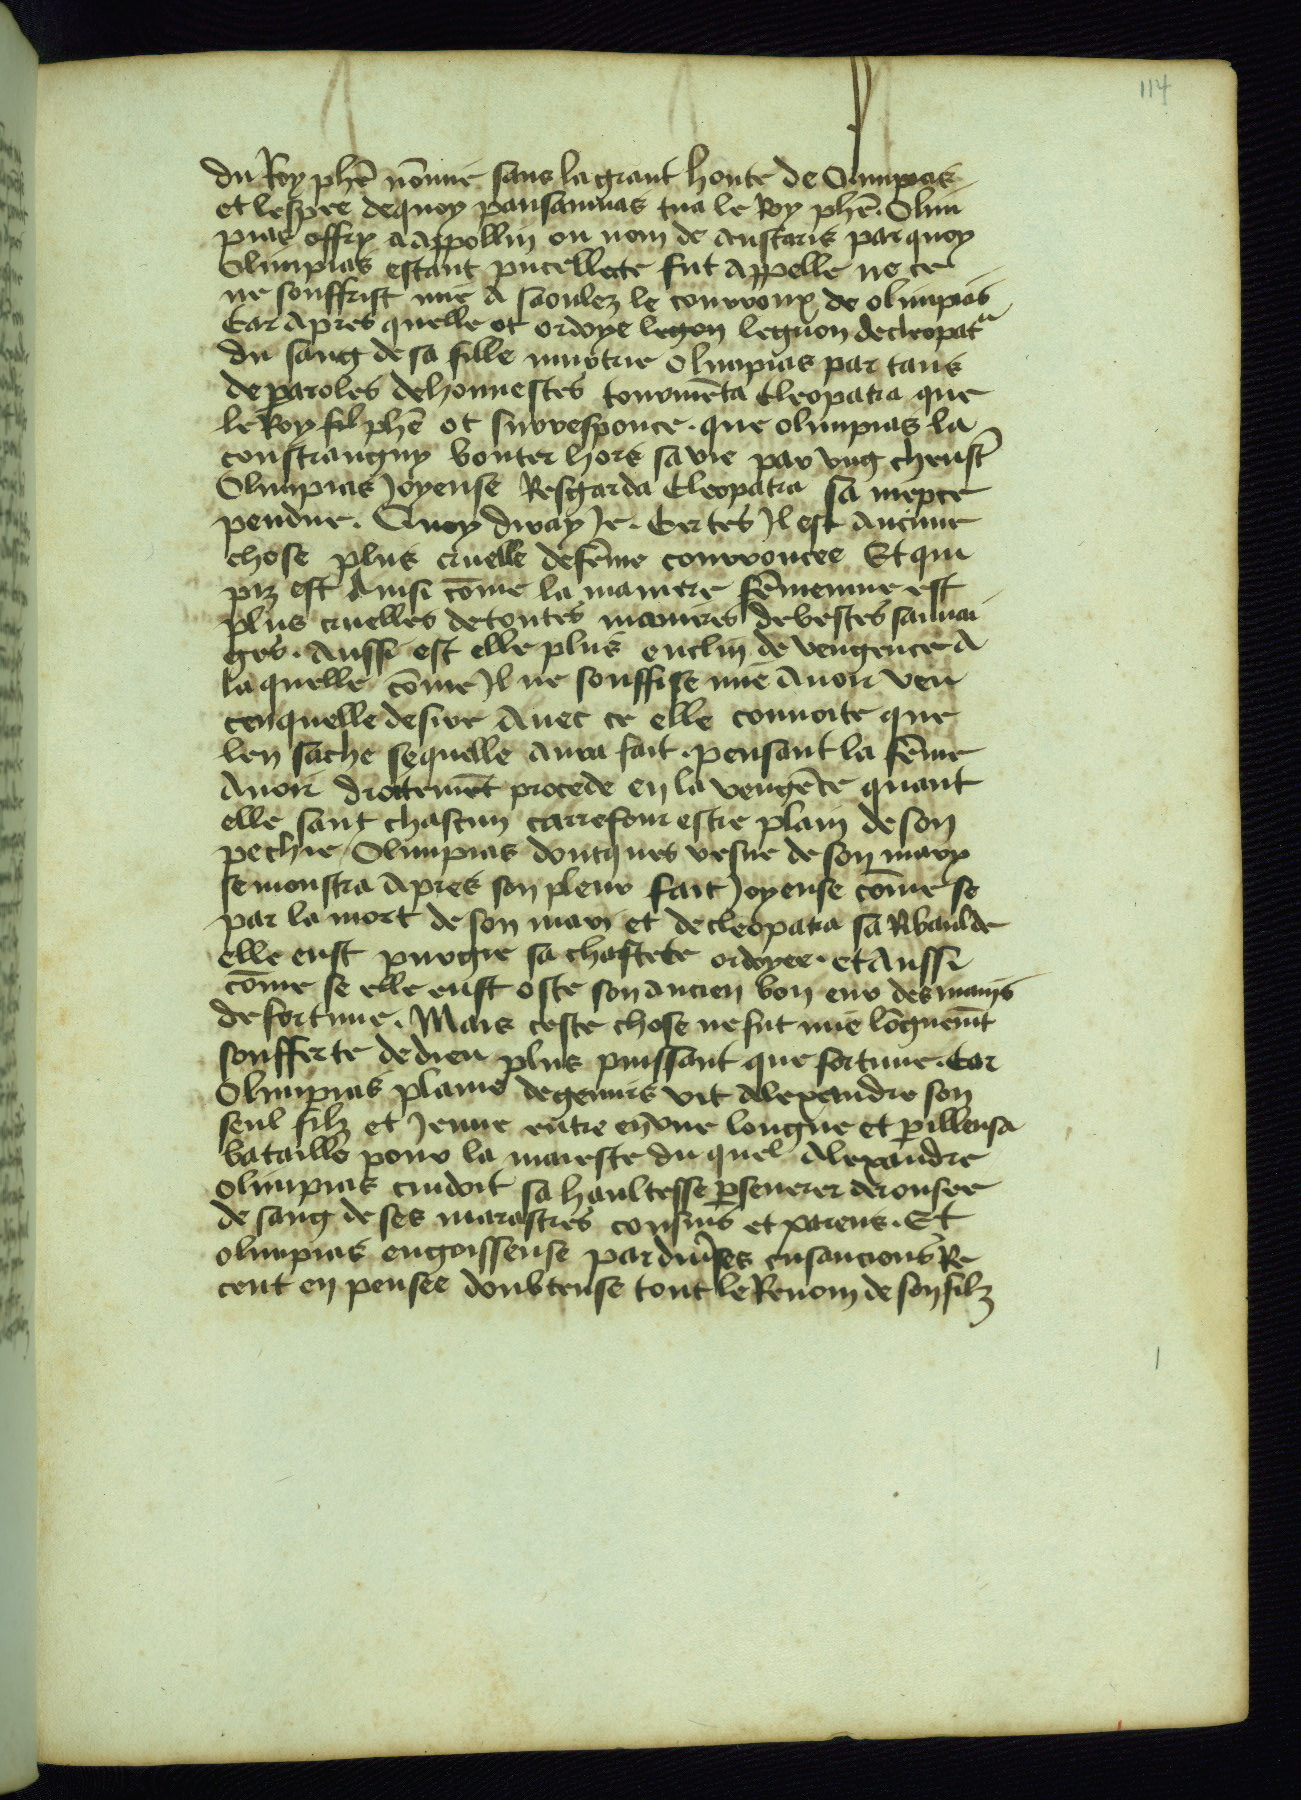 114
du Roy phē nōmie sans la grant honte de Olimpias
et lespee dequoy pansamias tua le Roy phē. Olim
pias offry a Appollin ou nom de anstaris par quoy
Olimpias estant pucellecte fut Appelle ne ce
ne souffrist mie A saoulez le courroux de olimpias
Car Apres quelle ot ordoye legon leguon de cleopatᵃ
du sang de sa fille murtrie Olimpias par tans
de paroles dehonnestes tourmēta Cleopatra que
le Roy fil phē ot surresponce. que olimpias la
constraigny bouter hors sa vie par ung cheust
Olimpias Joyeuse Resgarda Cleopatra sa niepce
pendue. Quoy diray Je. Certes Il est Aucune
chose plus cruelle de fēme courroucee Et qui
piz est Ainsi cōme la maniere fēmenine est
plus cruelles de toutes manieres de bestes saimai
ges. Aussi est elle plus enclin de vengence A
la quelle cōme Il ne souffise mie Auoir veu
ce quelle desire Auec ce elle conuoite que
len sache se quelle aura fait. pensant la fēme
Auoir droittemēt procede en la vengēce quant
elle sant chascun carrefour estre plain de son
pechie / Olimpias doncques vesue de son mary
se monstra Apres son pleur fait Joyeuse cōme se
par la mort de son mary et de cleopatra sa Ribaulde
elle eust purgie sa chastete ordoyee. et Aussi
cōme se elle eust oste son ancien bon eur des mains
de fortune. Mais ceste chose ne fut mie lōguemt
soufferte de dieu plus puissant que fortune. Car
Olimpias plaine de gemirs vit Alexandre son
seul filz et Jeune entre en une longue et perilleusa
bataille pour la maieste du quel Alexandre
olimpias cuidoit sa haultesse perseuerer derousee
de sang de ses marastres cousins et parens. Et
olimpias engoisseuse par diuses cusancions Re
ceut en pensee doubteuse tout le Renom de son filz